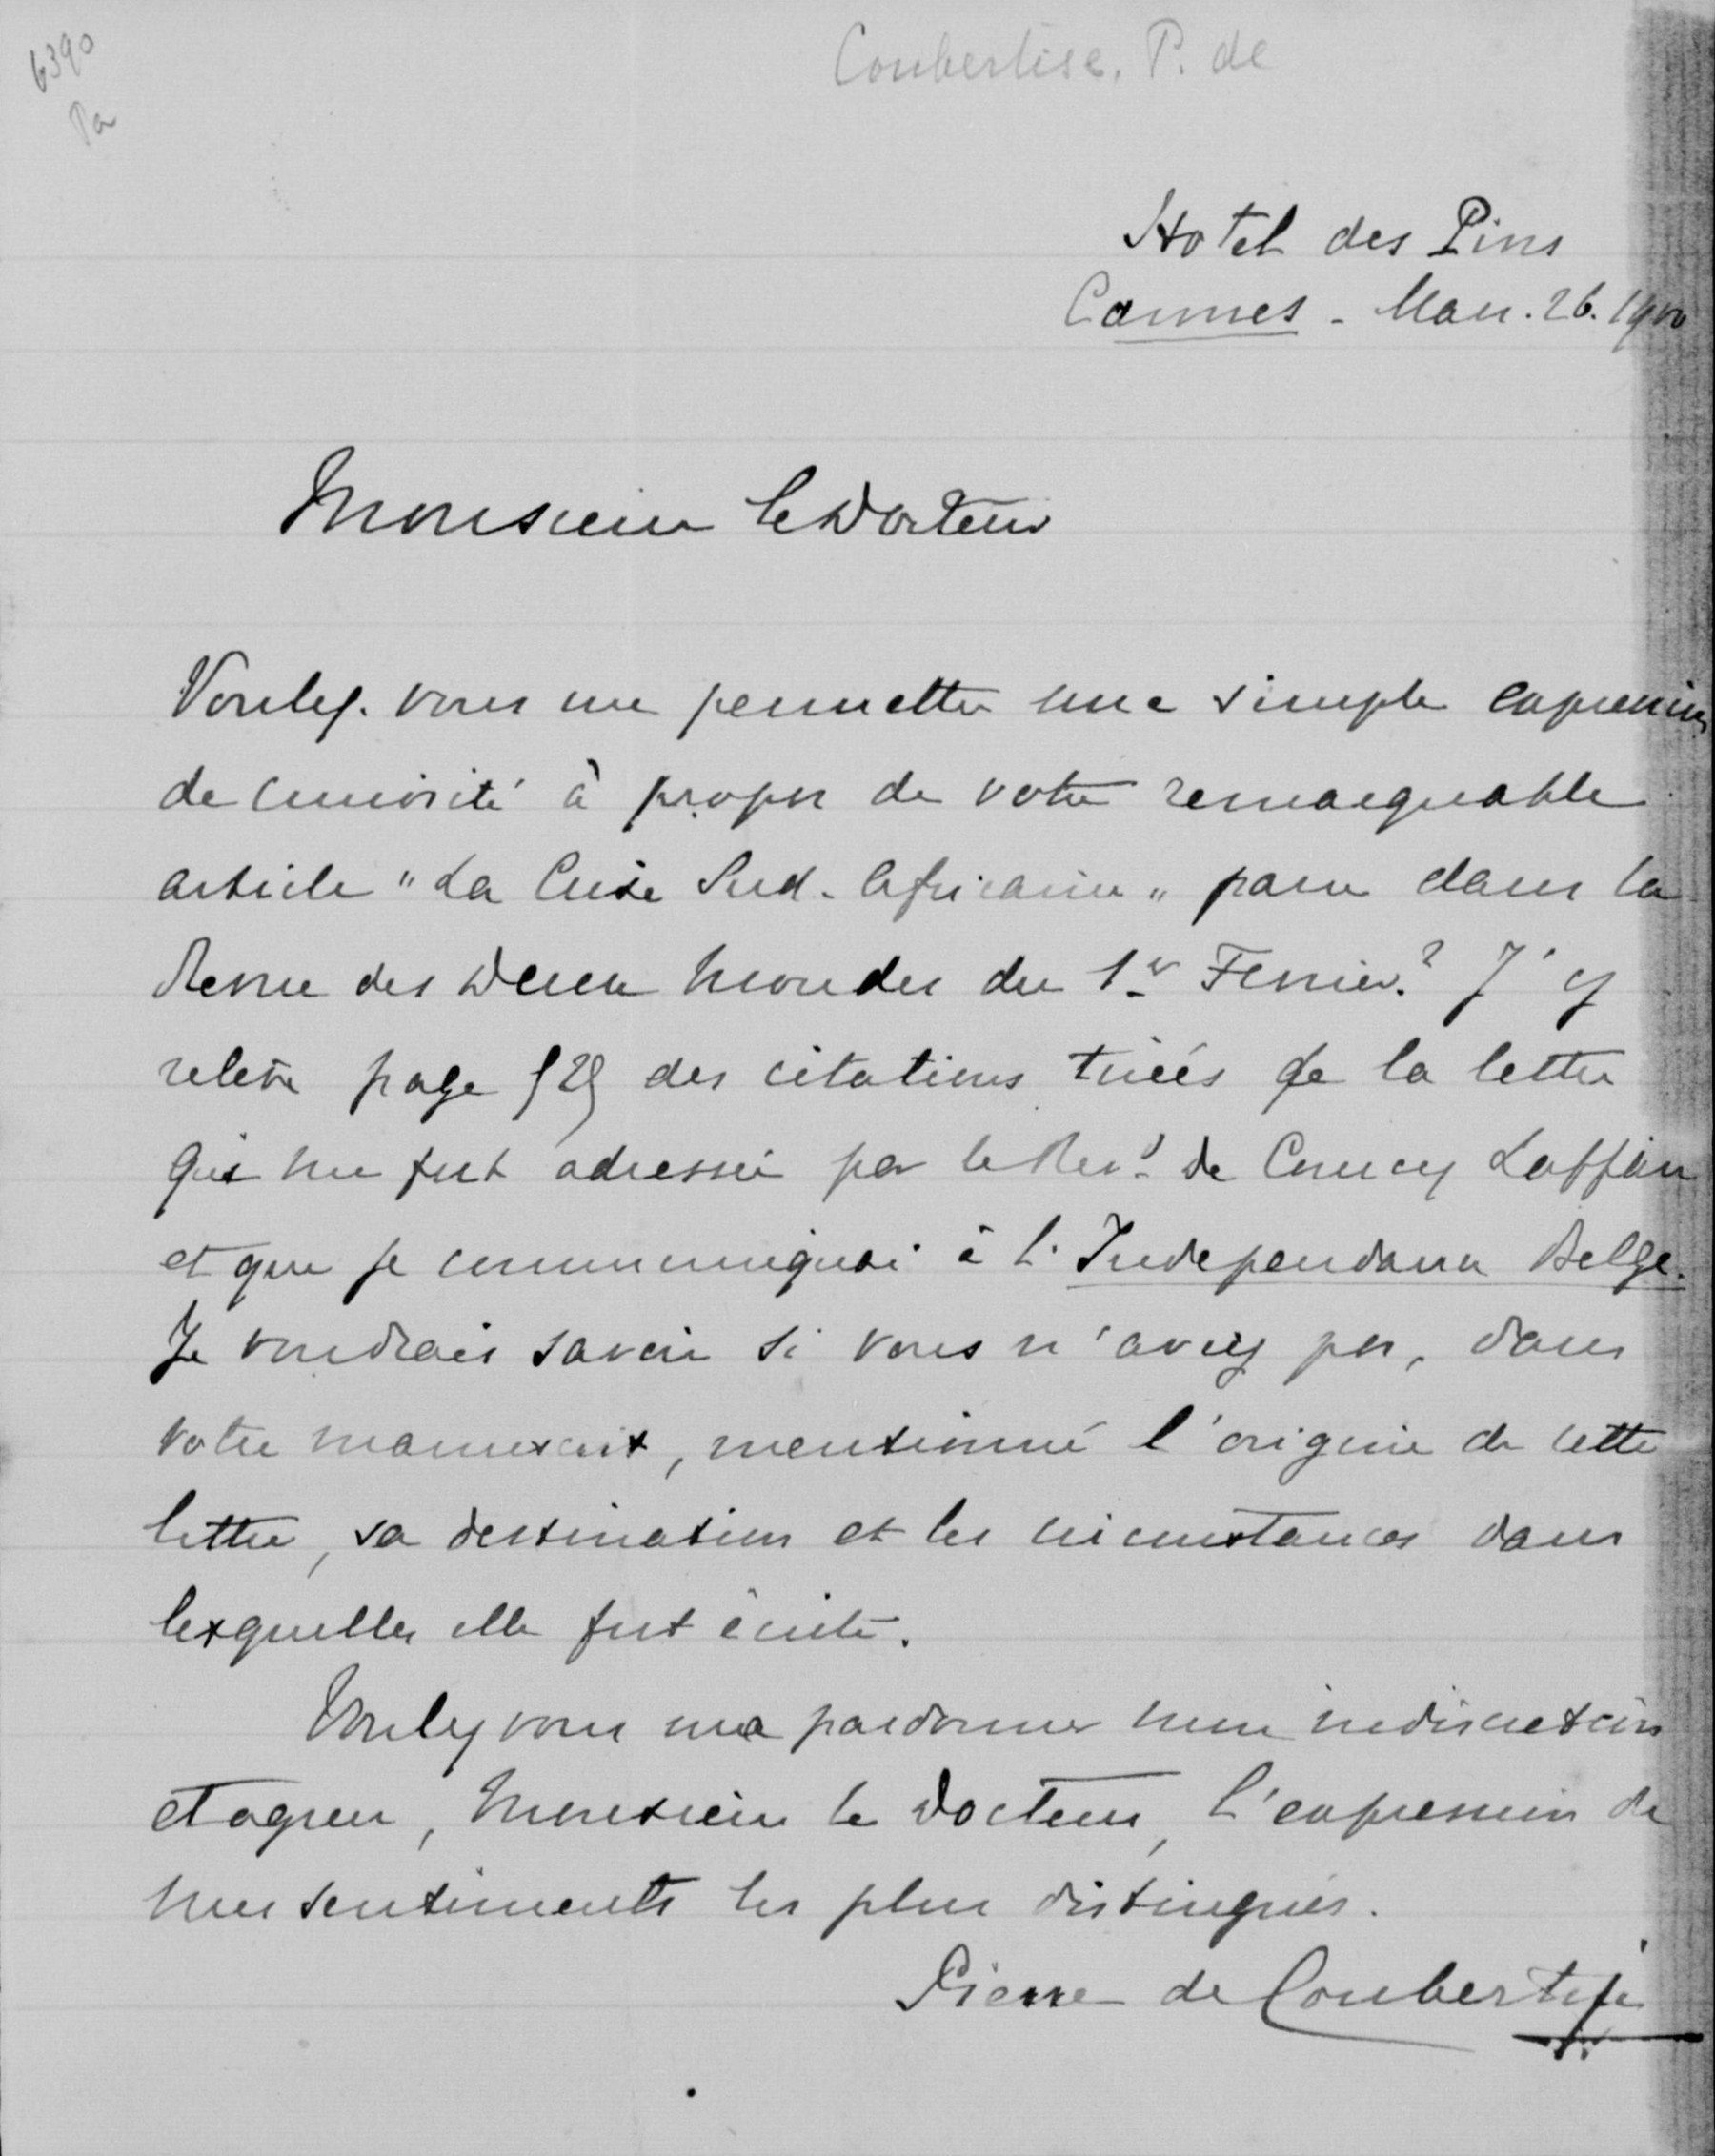 6390
Pa
Coubertise, P. de
Hotel des Pins
Cannes - Mars. 26. 1900
Monsieur le Docteur
Voulez-vous me permettre une simple expression
de curiosité à propos de votre remarquable
article "La Crise Sud-Africaine" paru dans la
Revue des Deux Mondes du 1er Fevrier? J'y
relève page 525 des citations tirées de la lettre
qui me fut adressée par le Revd de Courcy Laffan
et que je communiquai à l'Independance Belge.
Je voudrais savoir si vous n'aviez pas, dans
votre manuscrit, mentionné l'origine de cette
lettre, sa destination et les circonstances dans
lesquelles elle fut écrite.
Voulez vous me pardonner mon indiscretion
et agreer, Monsieur le Docteur, l'expression de
mes sentiments les plus distingués.
Pierre de Coubertin